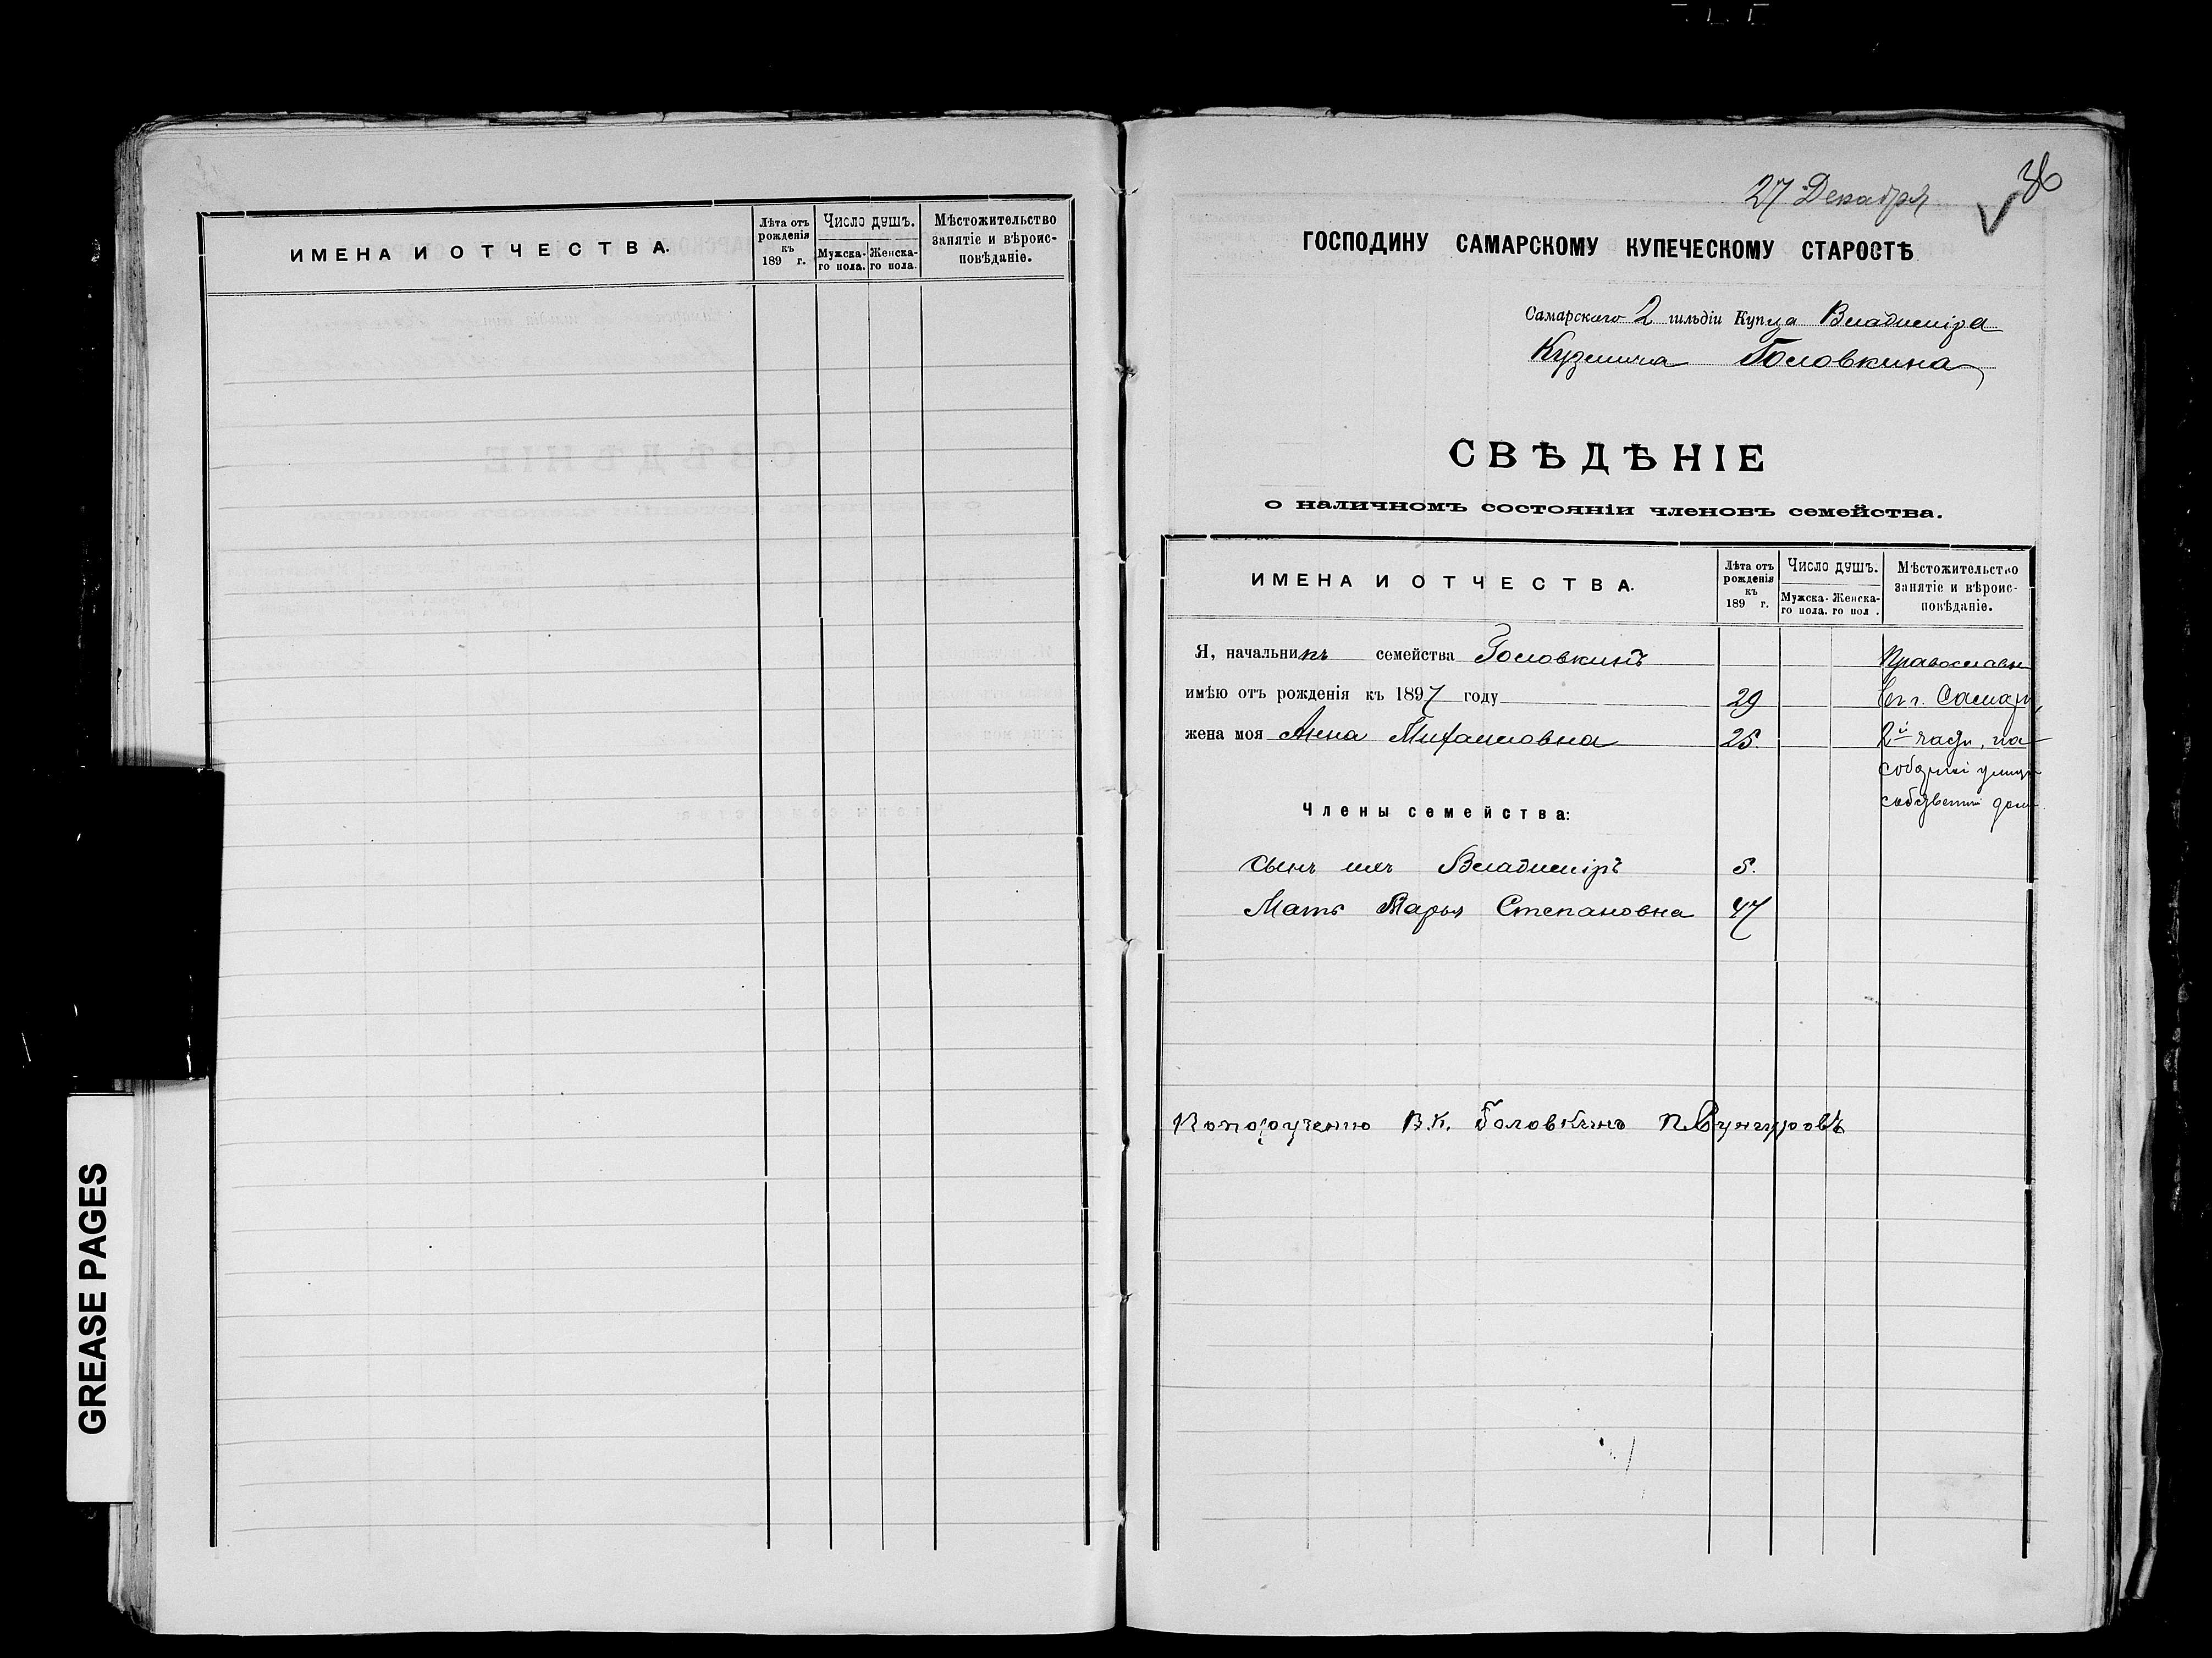 ИМЕНА И ОТЧЕСТВА.
Лѣта отъ рожденія къ 189 г.
Число душъ.
Мужска-го пола.
Женска-го пола.
Мѣстожительство занятіе и вѣроис-повѣданіе.
GREASE PAGES
27 Декабря
36
ГОСПОДИНУ САМАРСКОМУ КУПЕЧЕСКОМУ СТАРОСТѢ
Самарского 2 гильдіи Купца Владиміра
Кузмича Головкина
СВѢДѢНІЕ
о наличномъ состояніи членовъ семейства.
ИМЕНА И ОТЧЕСТВА.
Лѣта отъ рожденія къ 189 г.
Число душъ.
Мужска-го пола.
Женска-го пол .
Мѣстожительство занятіе и вѣроис-повѣданіе.
Я, начальникъ семейства Головкинъ Православн
имѣю отъ рожденія къ 1897 году 29 въ г. Самарѣ,
жена моя Анна Михайловна 25 2й части, на
соборной улицѣ
собственный домъ
Члены семейства:
сынъ ихъ Владиміръ 5.
Мать Марья Степановна 47
По порученію В.К. Головкина